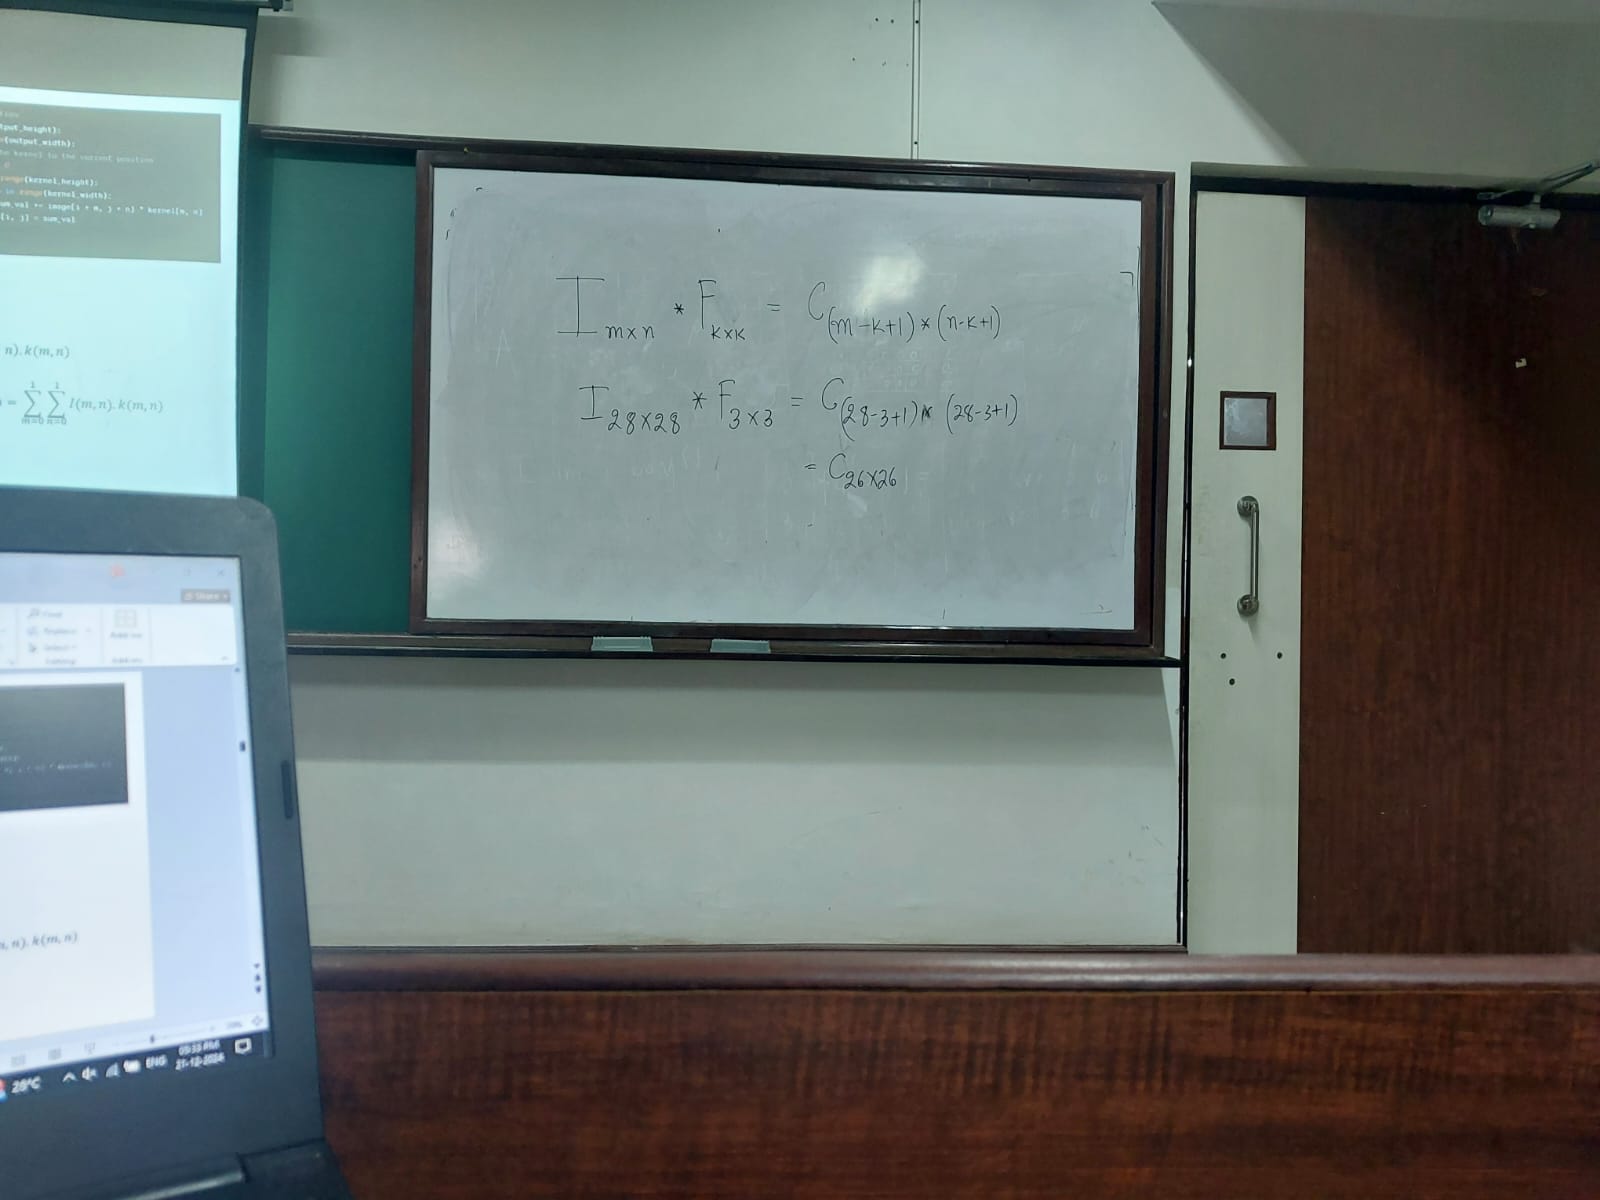 tput_height):
(output_width):
the kernel to the current position
range(kernel_height):
in range(kernel_width):
sum_val += image[i + m, j + n] * kernel[m, n]
[i, j] = sum_val
n).k(m,n)
= ∑ m=0 1 ∑ n=0 1 I(m,n).k(m,n)
I m×n * F k×k = C (m-k+1)*(n-k+1)
I 28×28 * F 3×3 = C (28-3+1)* (28-3+1)
= C 26×26
Share
Find
Replace
Select
Editing
Add-ins
n).k(m,n)
28°C ENG 27-12-2024